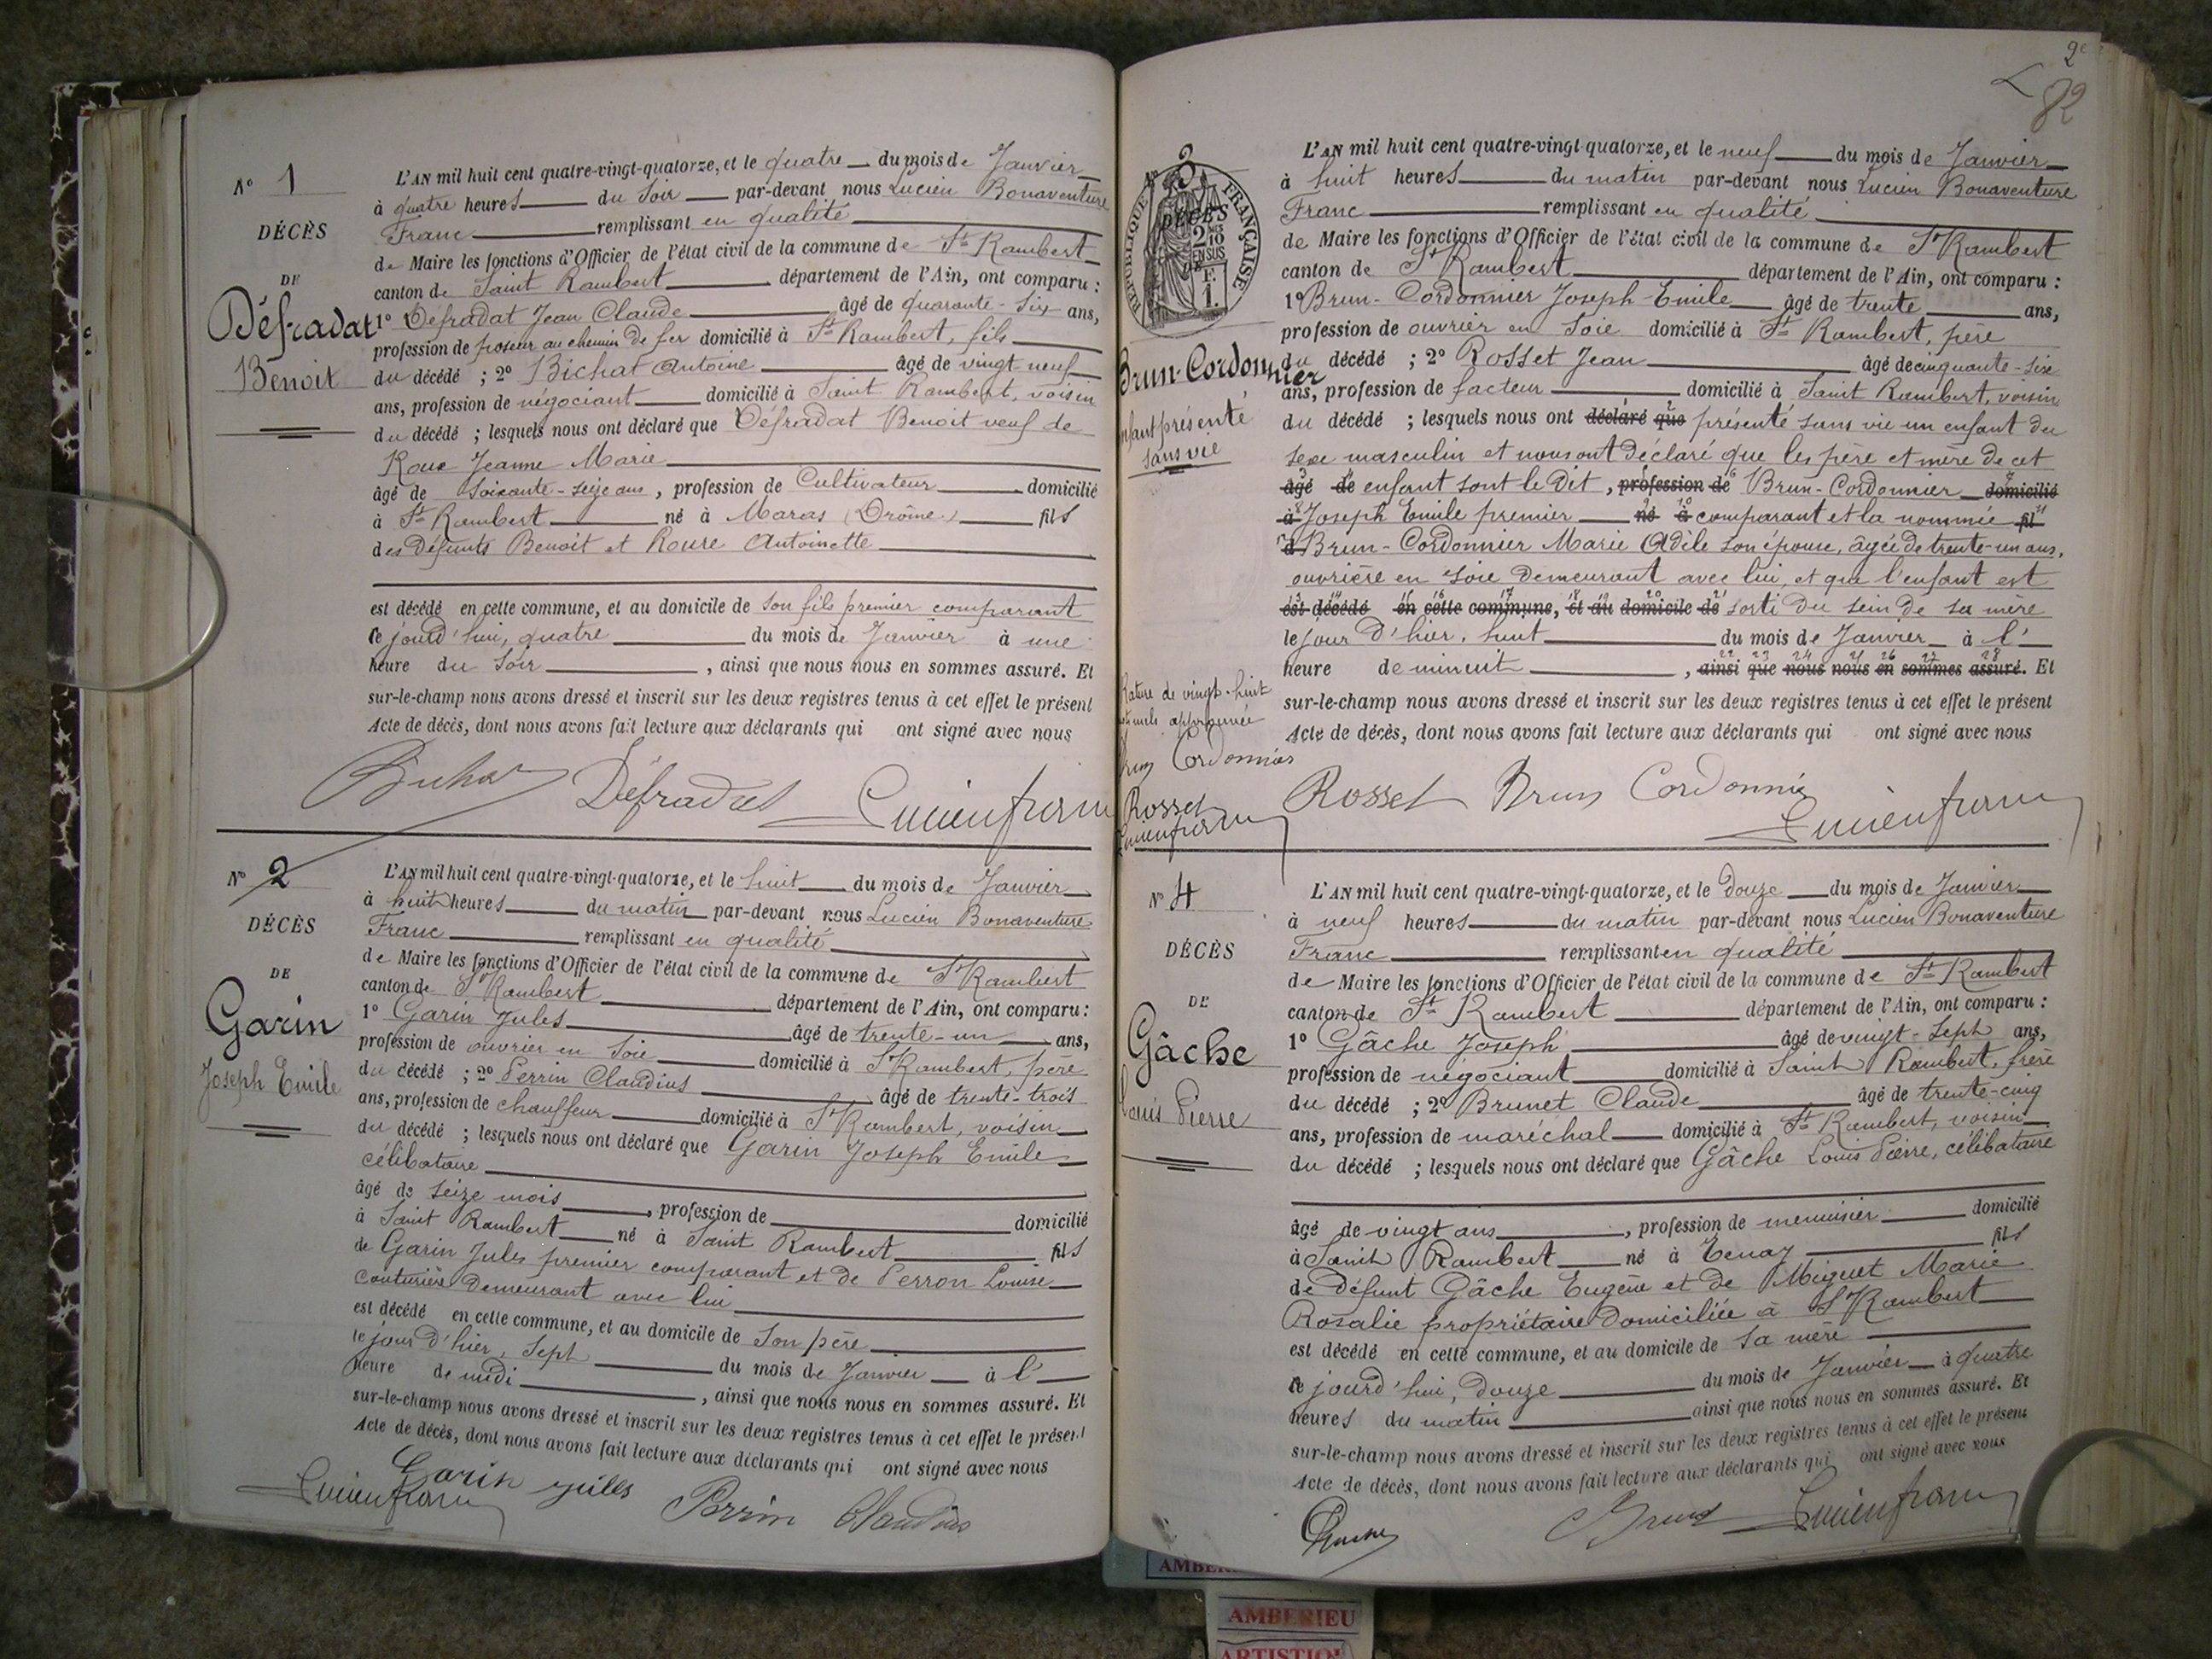 N° 1
DÉCÈS
DE
Défradat
Benoit
L'AN mil huit cent quatre-vingt-quatorze, et le quatre du mois de Janvier
à quatre heures du soir par-devant nous Lucien Bonaventure
Franc remplissant en qualité
de Maire les fonctions d'Officier de l'état civil de la commune de St Rambert
canton de Saint Rambert département de l'Ain, ont comparu :
1° Défradat Jean Claude âgé de quarante-six ans,
profession de poseur au chemin de fer domicilié à St Rambert, fils
du décédé ; 2° Bichat Antoine âgé de vingt neuf
ans, profession de négociant domicilié à Saint Rambert, voisin
du décédé ; lesquels nous ont déclaré que Défradat Benoit veuf de
Roux Jeanne Marie
âgé de soixante-seize ans, profession de Cultivateur domicilié
à St Rambert né à Maras (Drôme) fils
des défunts Benoit et Roure Antoinette
est décédé en cette commune, et au domicile de son fils premier comparant
ce jourd'hui, quatre du mois de Janvier à une
heure du soir, ainsi que nous nous en sommes assuré. Et
sur-le-champ nous avons dressé et inscrit sur les deux registres tenus à cet effet le présent
Acte de décès, dont nous avons fait lecture aux déclarants qui ont signé avec nous
Bichat Défradat Lucien franc
N° 2
DÉCÈS
DE
Garin
Joseph Emile
L'AN mil huit cent quatre-vingt-quatorze, et le huit du mois de Janvier
à huit heures du matin par-devant nous Lucien Bonaventure
Franc remplissant en qualité
de Maire les fonctions d'Officier de l'état civil de la commune de St Rambert
canton de St Rambert département de l'Ain, ont comparu :
1° Garin Jules âgé de trente-un ans,
profession de ouvrier en soie domicilié à St Rambert, père
du décédé ; 2° Perrin Claudius âgé de trente-trois
ans, profession de chauffeur domicilié à St Rambert, voisin
du décédé ; lesquels nous ont déclaré que Garin Joseph Emile
célibataire
âgé de seize mois, profession de domicilié
à Saint Rambert né à Saint Rambert fils
de Garin Jules premier comparant et de Perron Louise
couturière demeurant avec lui
est décédé en cette commune, et au domicile de son père
le jour d'hier, sept du mois de Janvier à l'
heure de midi, ainsi que nous nous en sommes assuré. Et
sur-le-champ nous avons dressé et inscrit sur les deux registres tenus à cet effet le présent
Acte de décès, dont nous avons fait lecture aux déclarants qui ont signé avec nous
Lucien franc Garin Jules Perrin Claudius
2e
82
N° 3
RÉPUBLIQUE FRANÇAISE
DÉCÈS
2/10
EN SUS
DE
F.
1.
Brun-Cordonnier
enfant présenté
sans vie
L'AN mil huit cent quatre-vingt-quatorze, et le neuf du mois de Janvier
à huit heures du matin par-devant nous Lucien Bonaventure
Franc remplissant en qualité
de Maire les fonctions d'Officier de l'état civil de la commune de St Rambert
canton de St Rambert département de l'Ain, ont comparu :
1° Brun-Cordonnier Joseph Emile âgé de trente ans,
profession de ouvrier en soie domicilié à St Rambert, père
du décédé ; 2° Rosset Jean âgé de cinquante-six
ans, profession de facteur domicilié à Saint Rambert, voisin
du décédé ; lesquels nous ont déclaré que présenté sans vie un enfant du
sexe masculin et nous ont déclaré que les père et mère de cet
âgé de enfant sont le dit, profession de Brun-Cordonnier domicilié
à Joseph Emile premier né à comparant et la nommée fil
d Brun-Cordonnier Marie Adèle son épouse, âgée de trente-un ans,
ouvrière en soie demeurant avec lui, et que l'enfant est
est décédé en cette commune, et au domicile de sorti du sein de sa mère
le jour d'hier, huit du mois de Janvier à l'
heure de minuit, ainsi que nous nous en sommes assuré. Et
sur-le-champ nous avons dressé et inscrit sur les deux registres tenus à cet effet le présent
Acte de décès, dont nous avons fait lecture aux déclarants qui ont signé avec nous
Rature de vingt-huit
mots nuls approuvée
Brun Cordonnier
Rosset
Lucien franc
Rosset Brun Cordonnier
Lucien franc
N° 4
DÉCÈS
DE
Gâche
Louis Pierre
L'AN mil huit cent quatre-vingt-quatorze, et le douze du mois de Janvier
à neuf heures du matin par-devant nous Lucien Bonaventure
Franc remplissant en qualité
de Maire les fonctions d'Officier de l'état civil de la commune de St Rambert
canton de St Rambert département de l'Ain, ont comparu :
1° Gâche Joseph âgé de vingt-sept ans,
profession de négociant domicilié à Saint Rambert, frère
du décédé ; 2° Brunet Claude âgé de trente-cinq
ans, profession de maréchal domicilié à St Rambert, voisin
du décédé ; lesquels nous ont déclaré que Gâche Louis Pierre, célibataire
âgé de vingt ans, profession de menuisier domicilié
à Saint Rambert né à Tenay fils
de défunt Gâche Eugène et de Miguet Marie
Rosalie propriétaire domiciliée à St Rambert
est décédé en cette commune, et au domicile de sa mère
ce jourd'hui, douze du mois de Janvier à quatre
heures du matin ainsi que nous nous en sommes assuré. Et
sur-le-champ nous avons dressé et inscrit sur les deux registres tenus à cet effet le présent
Acte de décès, dont nous avons fait lecture aux déclarants qui ont signé avec nous
Gache Brunet Lucien franc
AMBERIEU
ARTISTIQU